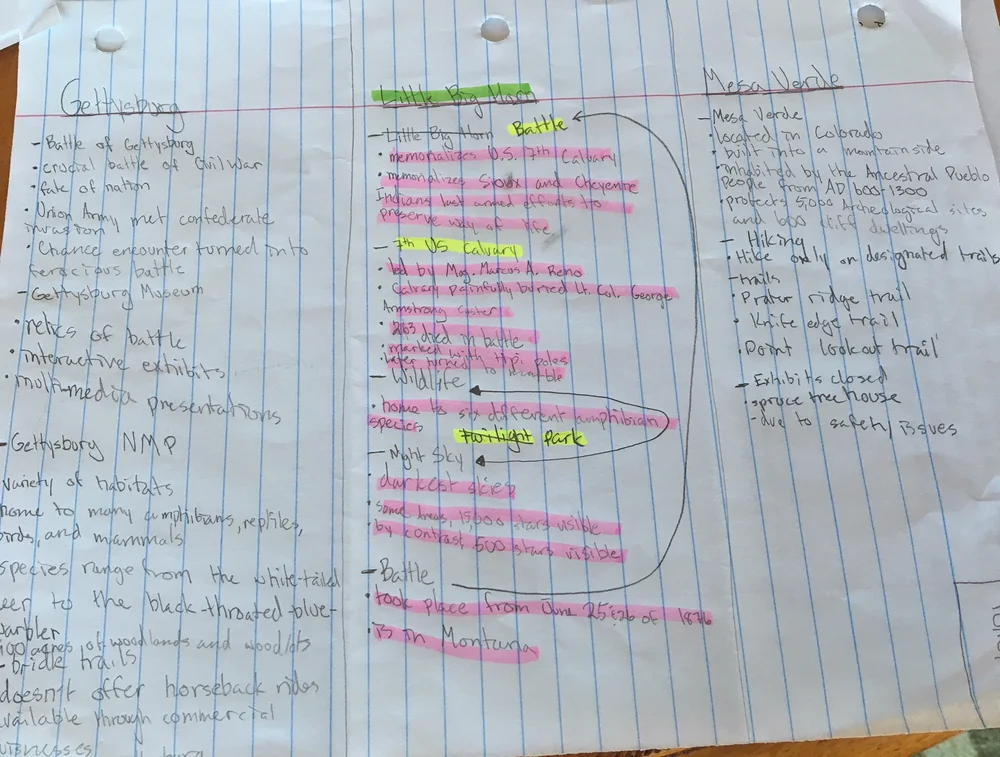 Gettysburg
- Battle of Gettysburg
• crucial battle of Civil War
• fate of nation
• Union Army met confederate
invasion
• Chance encounter turned into
ferocious battle
- Gettysburg Museum
• relics of battle
• interactive exhibits
• multi-media presentations
- Gettysburg NMP
variety of habitats
home to many amphibians, reptiles,
birds, and mammals
species range from the white-tailed
eer to the black-throated blue-
arbler
acres of woodlands and woodlots
- bridle trails
doesn't offer horseback rides
available through commercial
uisnesses
Little Big Horn
- Little Big Horn Battle
• memorializes U.S. 7th Calvary
• memorializes Sioux and Cheyenne
Indians last armed efforts to
preserve way of life
- 7th US Calvary
• led by Maj. Marcus A. Reno
• Calvary painfully burried Lt. Col. George
Armstrong Custer
• 263 died in battle
• marked with tipi poles
• later turned to marble
- Wildlife
• home to six different amphibian
species
twilight Park
- Night Sky
darkest skies
• some areas, 15,000 stars visible
• by contrast 500 stars visible
- Battle
• took place from June 25 & 26 of 1876
• is in Montana
Mesa Verde
- Mesa Verde
• located in Colorado
• built into a mountainside
• inhabited by the Ancestral Pueblo
people from AD 600-1300
• protects 5,000 Archeological sites
and 600 cliff dwellings
- Hiking
• Hike only on designated trails
- trails
• Prater ridge trail
• Knife edge trail
• Point lookout trail
- Exhibits closed
• spruce tree house
- due to safety issues